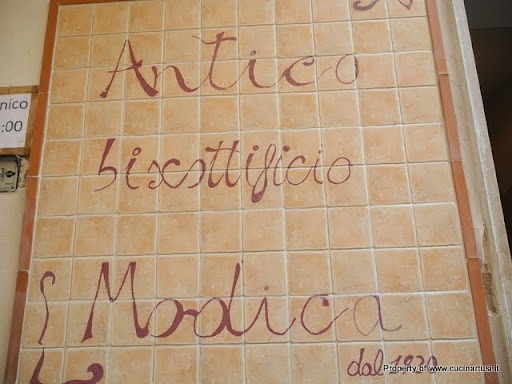 Antico
nico
:00
biscottificio
Modica
dal 1930
Property of www.cucinartusi.it